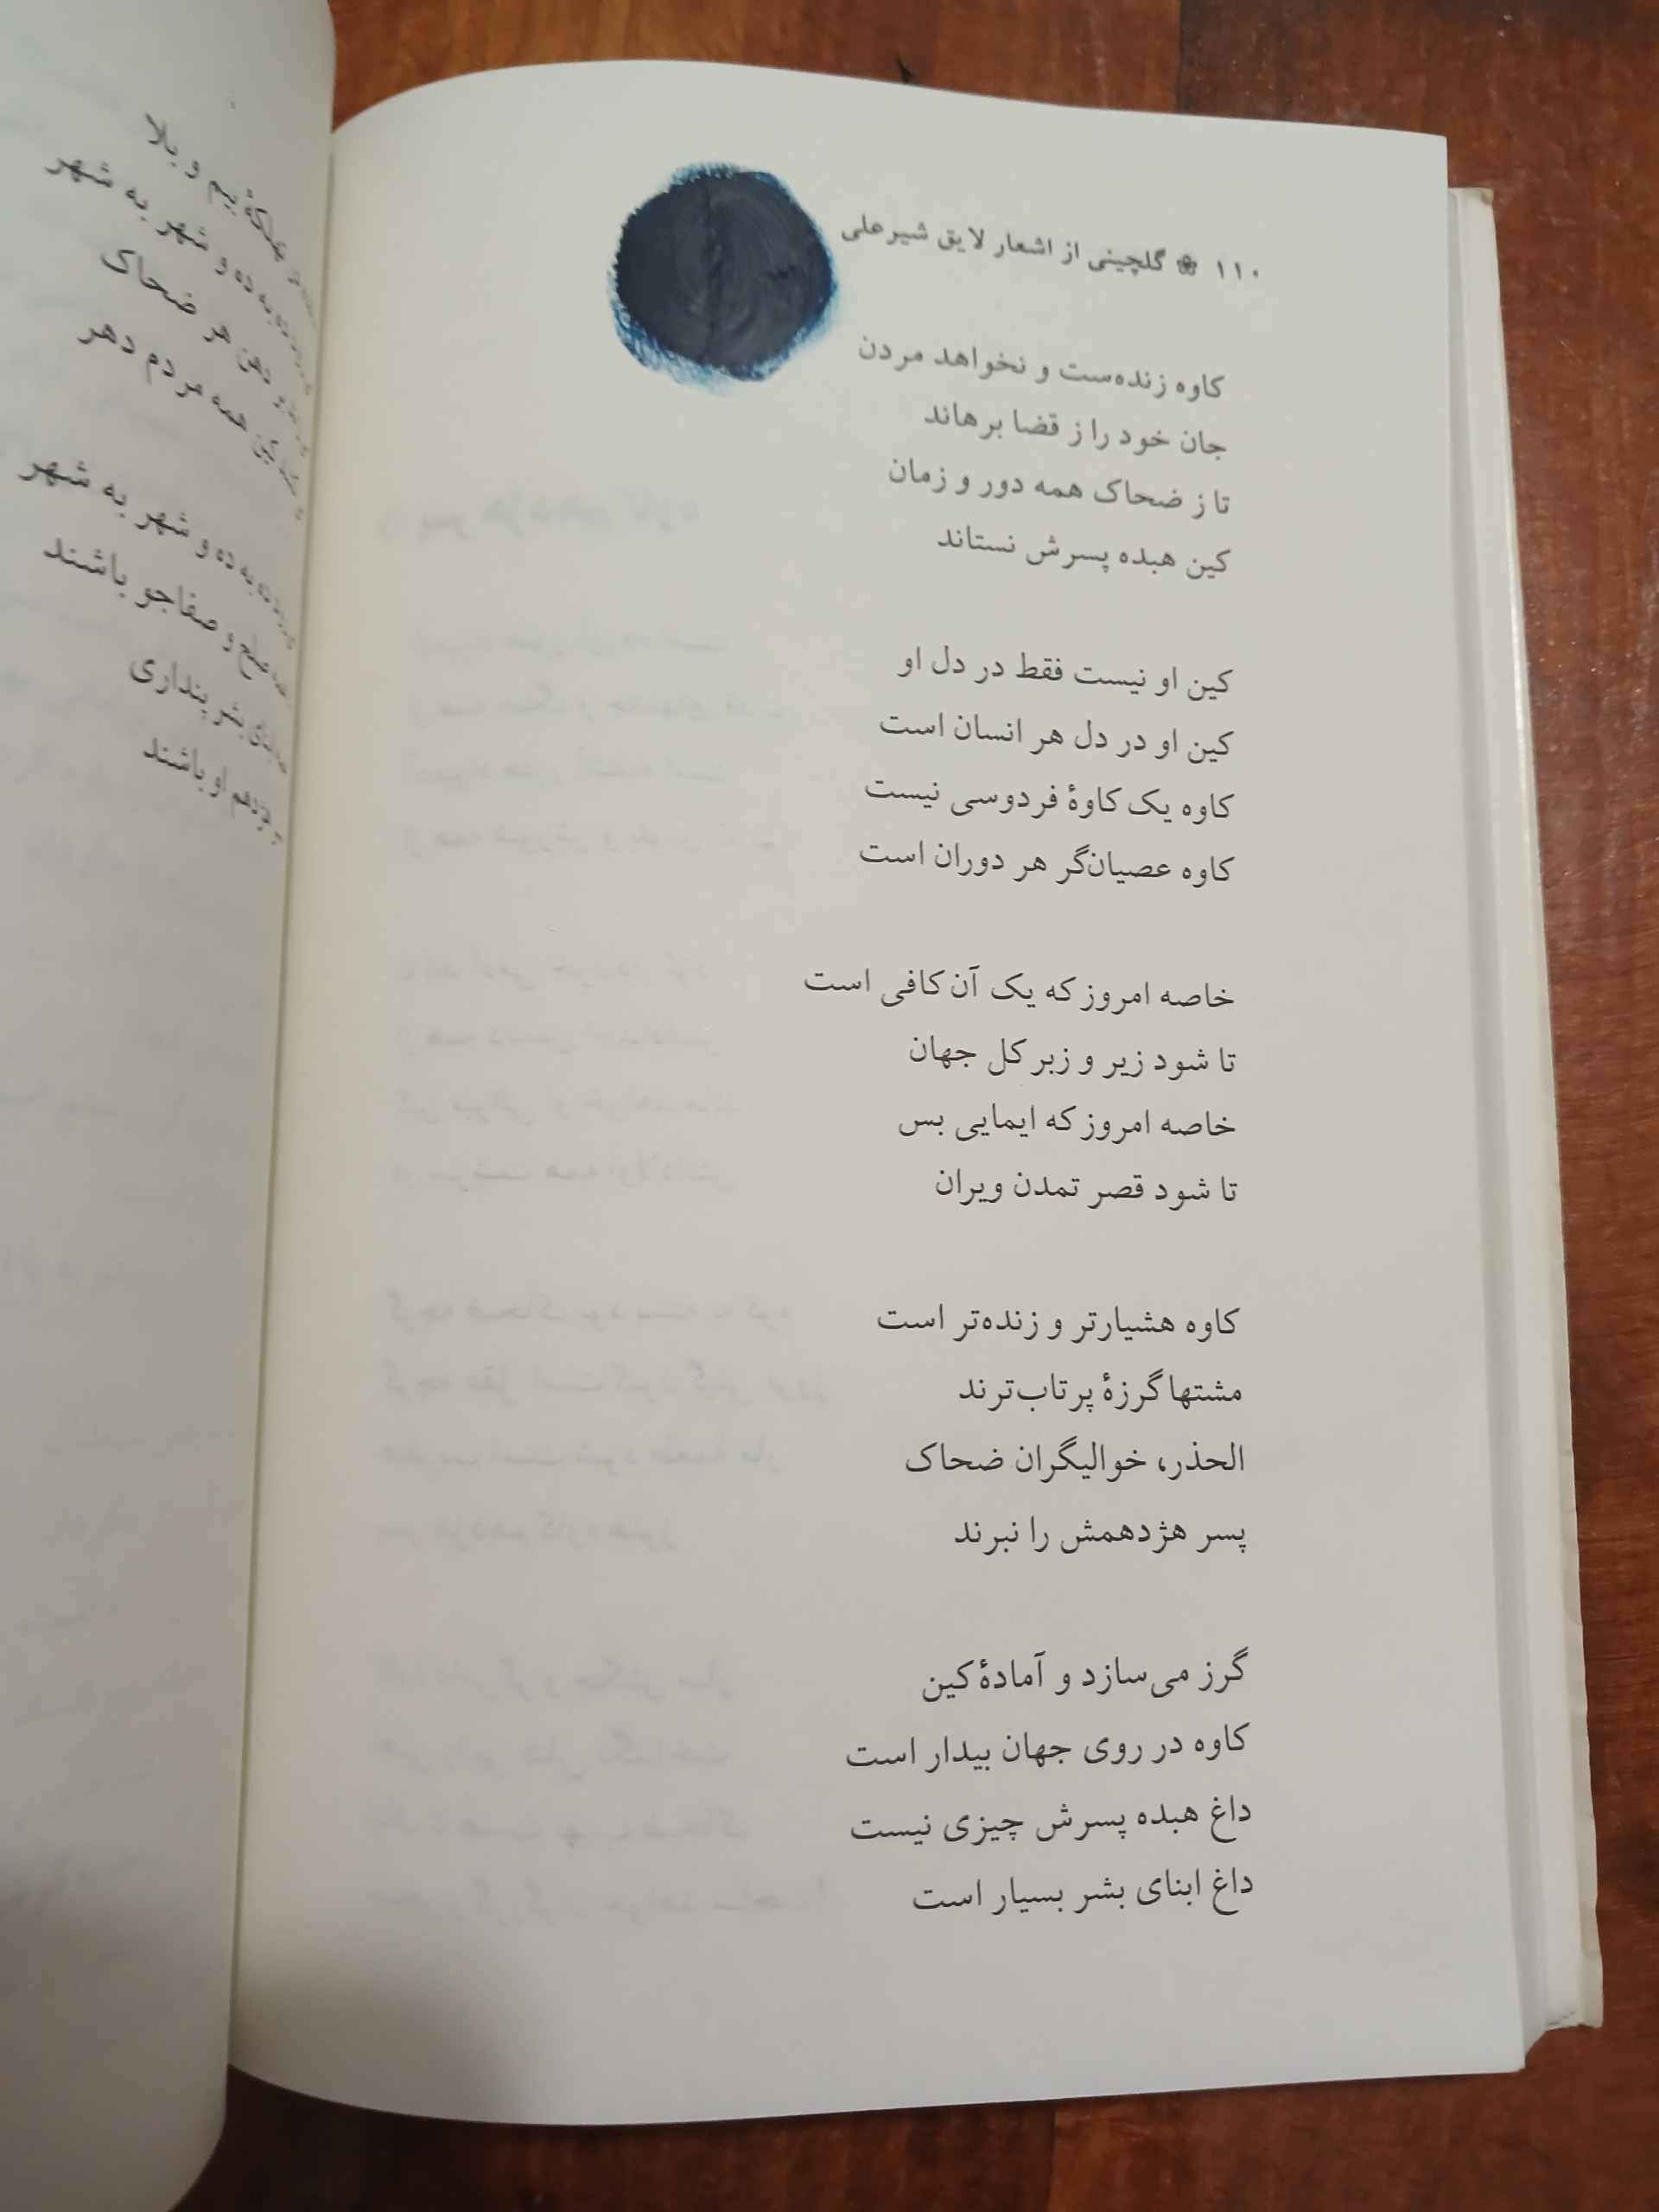 ۱۱۰ ❀ گلچینی از اشعار لایق شیرعلی
کاوه زنده‌ست و نخواهد مردن
جان خود را ز قضا برهاند
تا ز ضحاک همه دور و زمان
کین هبده پسرش نستاند
کین او نیست فقط در دل او
کین او در دل هر انسان است
کاوه یک کاوهٔ فردوسی نیست
کاوه عصیان‌گر هر دوران است
خاصه امروز که یک آن کافی است
تا شود زیر و زبر کل جهان
خاصه امروز که ایمایی بس
تا شود قصر تمدن ویران
کاوه هشیارتر و زنده‌تر است
مشتها گرزهٔ پرتاب‌ترند
الحذر، خوالیگران ضحاک
پسر هژدهمش را نبرند
گرز می‌سازد و آمادهٔ کین
کاوه در روی جهان بیدار است
داغ هبده پسرش چیزی نیست
داغ ابنای بشر بسیار است
یم و بلا
به ده و شهر به شهر
دهن هر ضحاک
همه مردم دهر
به ده و شهر به شهر
صلح و صفاجو باشند
بشر پنداری
او باشند